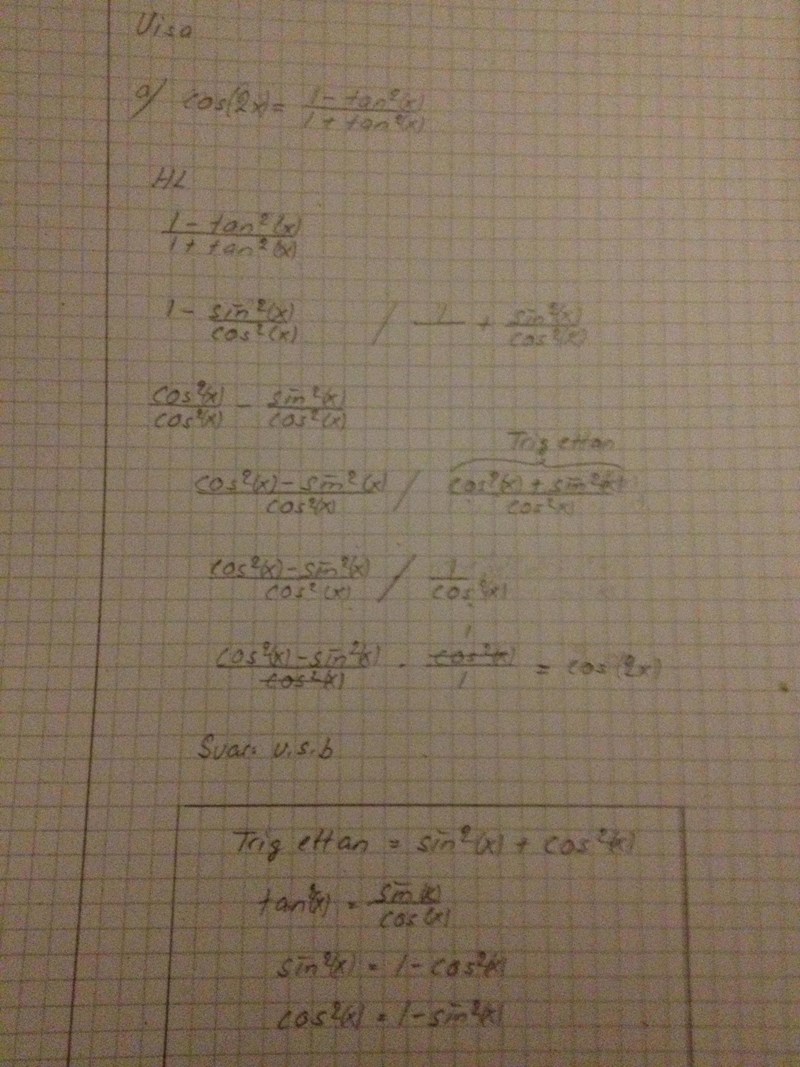 Visa
a) cos(2x) = (1 - tan²(x)) / (1 + tan²(x))
HL
(1 - tan²(x)) / (1 + tan²(x))
1 - sin²(x)/cos²(x) / 1 + sin²(x)/cos²(x)
cos²(x)/cos²(x) - sin²(x)/cos²(x)
Trig ettan
(cos²(x) - sin²(x))/cos²(x) / (cos²(x) + sin²(x))/cos²(x)
(cos²(x) - sin²(x))/cos²(x) / 1/cos²(x)
(cos²(x) - sin²(x))/cos²(x) · cos²(x)/1 = cos(2x)
Svar: v.s.b
Trig ettan = sin²(x) + cos²(x)
tan²(x) = sin(x)/cos(x)
sin²(x) = 1 - cos²(x)
cos²(x) = 1 - sin²(x)